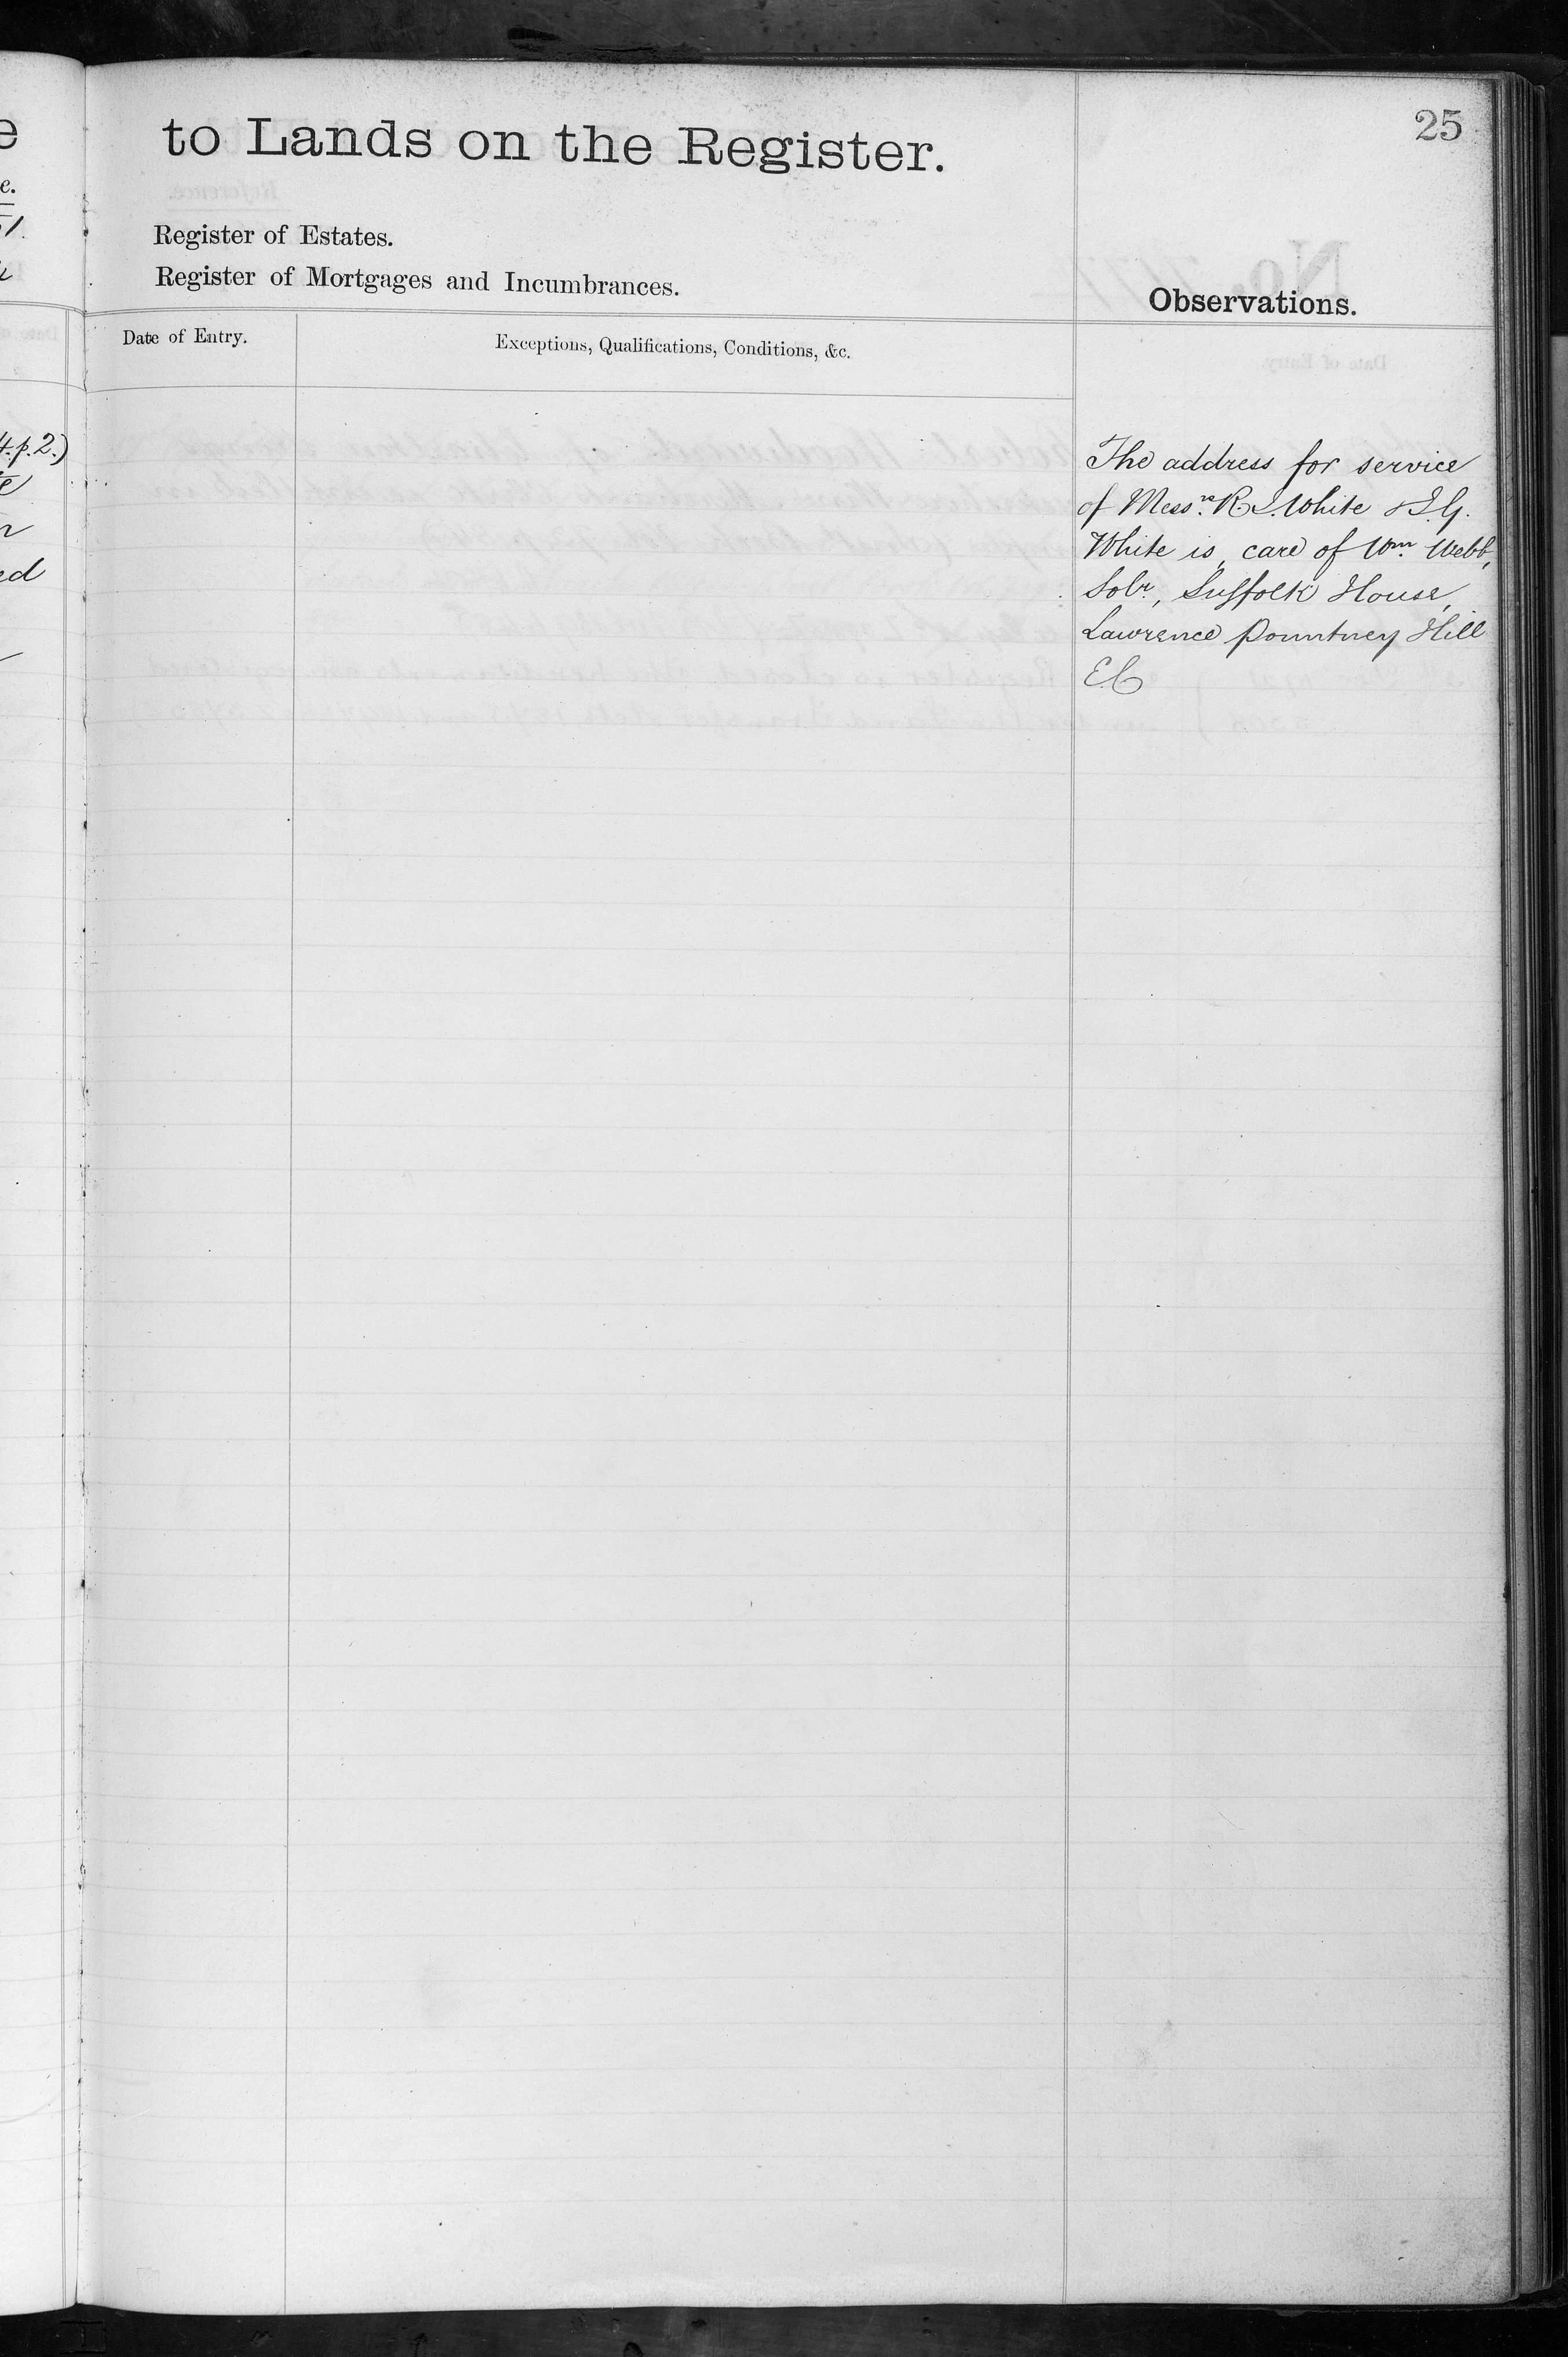 25
to Lands on the Register.
Register of Estates.
Register of Mortgages and Incumbrances.
Observations.
Date of Entry.
Exceptions, Qualifications, Conditions, &c.
4. p. 2.)
ed
The address for service
of Messrs. R. White & G.
White is, care of Wm. Webb,
Solr., Suffolk House,
Lawrence Pountney Hill
E.C